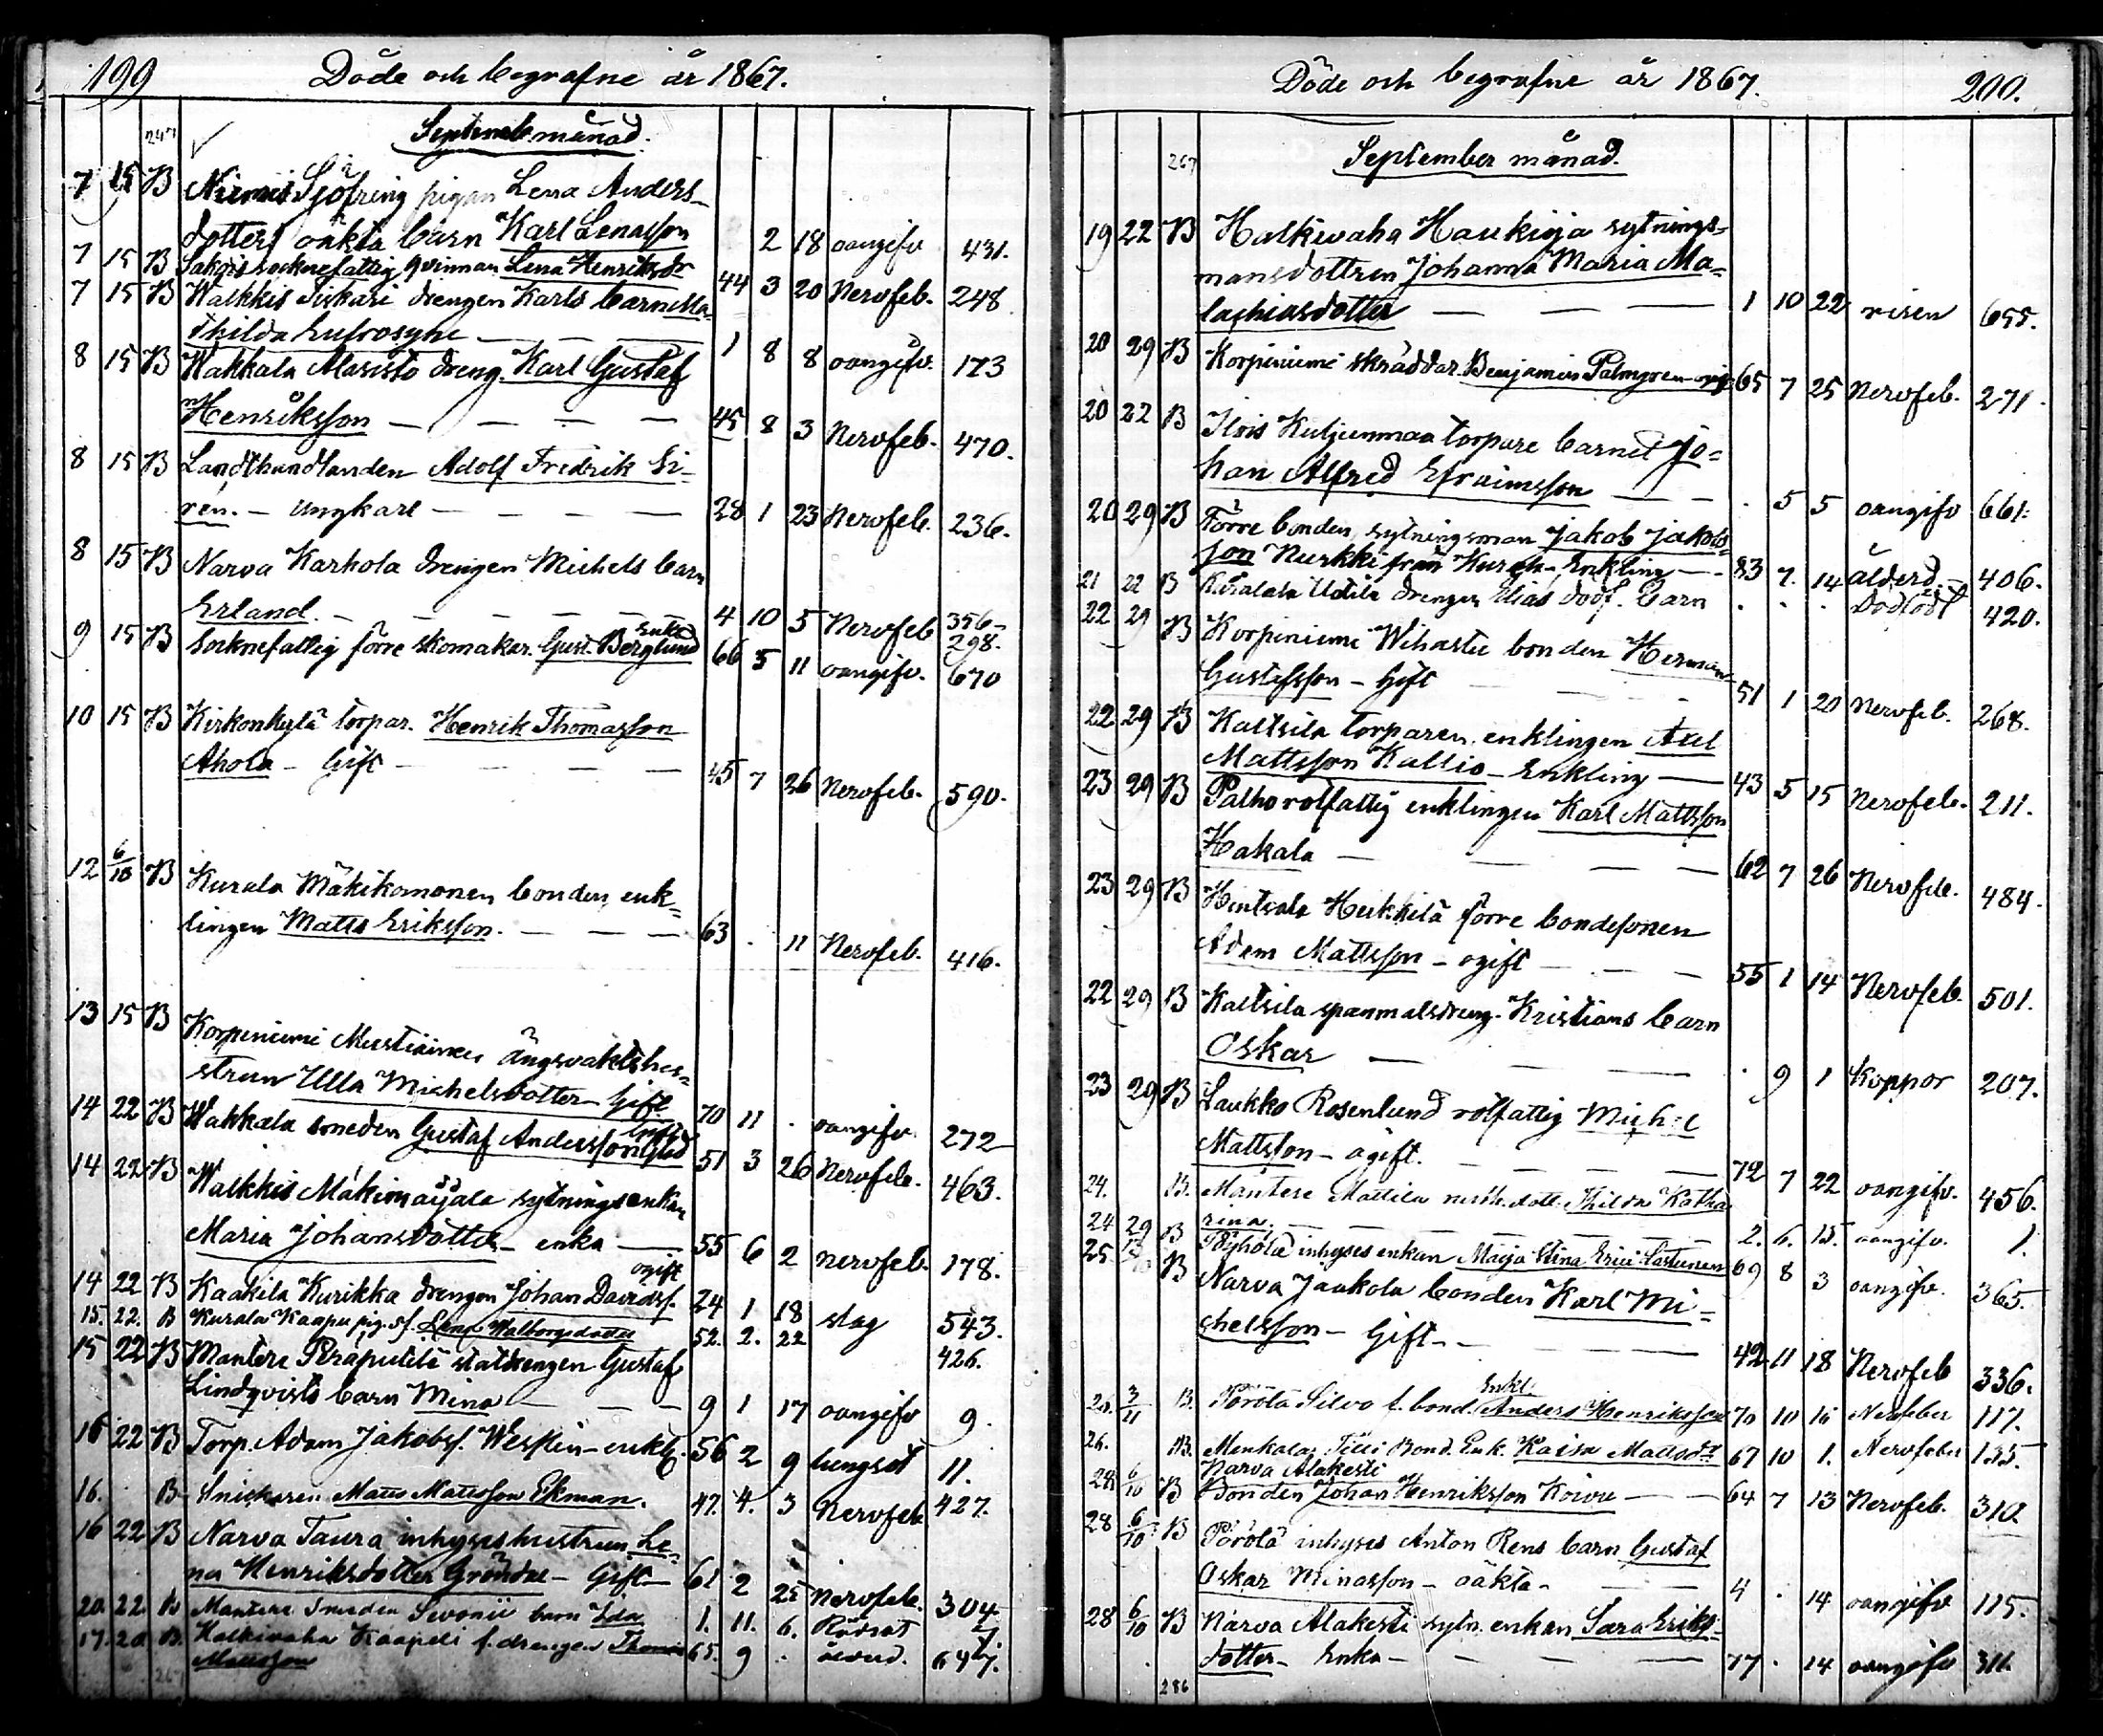 199 Döde och begrafne år 1867.
247 Septemb månad.
7 15 B Niemis Sjöfring pigan Lena Anders-
dotters oäkta barn Karl Lenasson 2 18 oangifv 431.
7 15 B socknefattig qvinnan Lena Henriksdr 44 3 20 Nervfeb. 248
7 15 B Walkkis Siskari drengen Karls barn Ma-
thilda Eufrosyne — 1 8 8 oangifv. 173
8 15 B Wakkala Alasisto dreng. Karl Gustaf
Henriksson — — — — 45 8 3 Nervfeb. 470.
8 15 B Landthandlanden Adolf Fredrik Si-
rén. — Ungkarl — — — — 28 1 23 Nervfeb. 236.
8 15 B Narva Karhola drengen Michels barn
Erland. — — — — 4 10 5 Nervfeb 356-
298.
Enkl
9 15 B Socknefattig förre skomakar. Gust. Berglund 66 5 11 oangifv. 670
10 15 B Kirkonkylä torpar. Henrik Thomasson
Ahola — Gift — — — — 45 7 26 Nervfeb. 590.
12 6/10 B Kurala Mäkikomonen bonden, enk=
lingen Matts Eriksson. — — — 63 . 11 Nervfeb. 416.
13 15 B Korpiniemi Mustiainen ängsvaktshu-
strun Ulla Michelsdotter — Gift 70 11 . oangifv. 272
14 22 B Wakkala smeden Gustaf Andersson 51 3 26 Nervfeb. 463.
14 22 B Walkkis Mäkimaijala sytningsenkan
Maria Johansdotter — enka — 55 6 2 nervfeb. 178.
ogift
14 22 B Kaakila Kurikka drengen Johan Davidsf. 24 1 18 slag 543.
15. 22. B Kurala Kaapu pig. Lena Walborgsdotter 52. 2. 22 426.
15 22 B Mantere Peräputila statdrengen Gustaf
Lindqvists barn Mina — — — 9 1 17 oangifv 9.
16 22 B Torp. Adam Jakobsf. Weskin — enkl. 56 2 9 lungsot 11.
16. B Snickaren Matts Mattsson Ekman. 47. 4. 3 Nervfeb 427.
16 22 B Narva Taura inhyseshustrun Le-
na Henriksdotter Gröndal — Gift — 61 2 25 Nervfeb. 304
20 22 B Mantere Smeden barn Ida 1. 11. 6. Rödsot
17. 20 B. Halkivaha Kaapeli f. drengen Thomas 65. 9 . ålderd. 647.
Mattsson
267
Döde och begrafne år 1867. 200.
267 September månad.
19 22 B Halkivaha Haukioja sytnings=
mansdottren Johanna Maria Ma=
lachiasdotter — — — 1 10 22 risen 655.
20 29 B Korpiniemi skräddar. Benjamin Palmgren ogift 65 7 25 Nervfeb. 271.
20 22 B Ilois Kuljunmaa torpare barnet Jo=
han Alfred Efraimsson — — . 5 5 oangifv 661.
20 29 B Förre bonden, sytningsman Jakob Jakobs-
son Nurkki från Kurala — Enkling — 83 7. 14 ålderd. — 406.
21 22 B Kuralala Uotila drengen Elias dödf. barn . . . Dödfödt 420.
22 29 B Korpiniemi Wihastee bonden Herman
Gustafsson — Gift — — — 51 1 20 Nervfeb. 268.
22 29 B Kaltsila torparen, enklingen Axel
Mattsson Kallio — Enkling — 43 5 15 Nervfeb. 211.
23 29 B Palho rotfattig enklingen Karl Mattsson
Hakala — — — — 62 7 26 Nervfeb. 484.
23 29 B Hintsala Heikkilä förre bondesonen
Adam Mattsson — ogift — — 55 1 14 Nervfeb. 501.
22 29 B Kaltsila spanmålsdreng. Kristians barn
Oskar — — — . 9 1 Koppor 207.
23 29 B Laukko Rosenlund rotfattig Michel
Mattsson — ogift. — — — 72 7 22 oangifv. 456.
24. B. Mantere Mattila dott. Thilda Katha
rina. — — — 2. 6. 15. oangifv. 1.
24 29 B Pöyhölä inhyses enkan Maija Stina Erici Lastunen 69 8 3 oangifv. 365.
25 B Narva Jaakola bonden Karl Mi=
chelsson — Gift — — — 42 11 18 Nervfeb 336.
Enkl
26. 3/11 B. Pörölä Silvo f. bond. Anders Henriksson 70 10 16 Nervfeber 117.
26. B. Menkala Tilli Bond. Enk. Kaisa Mattsdr 67 10 1. Nervfeber 135.
Narva Alakesti
28 6/10 B Bonden Johan Henriksson Koivu — — 64 7 13 Nervfeb. 310
28 6/10 B Pörölä inhyses Anton Rens barn Gustaf
Oskar Minasson — oäkta — — 4 . 14 oangifv 115.
28 6/10 B Narva Alakesti sytn. enkan Sara Eriks-
dotter — Enka — — — — 77 . 14 oangifv 311.
286